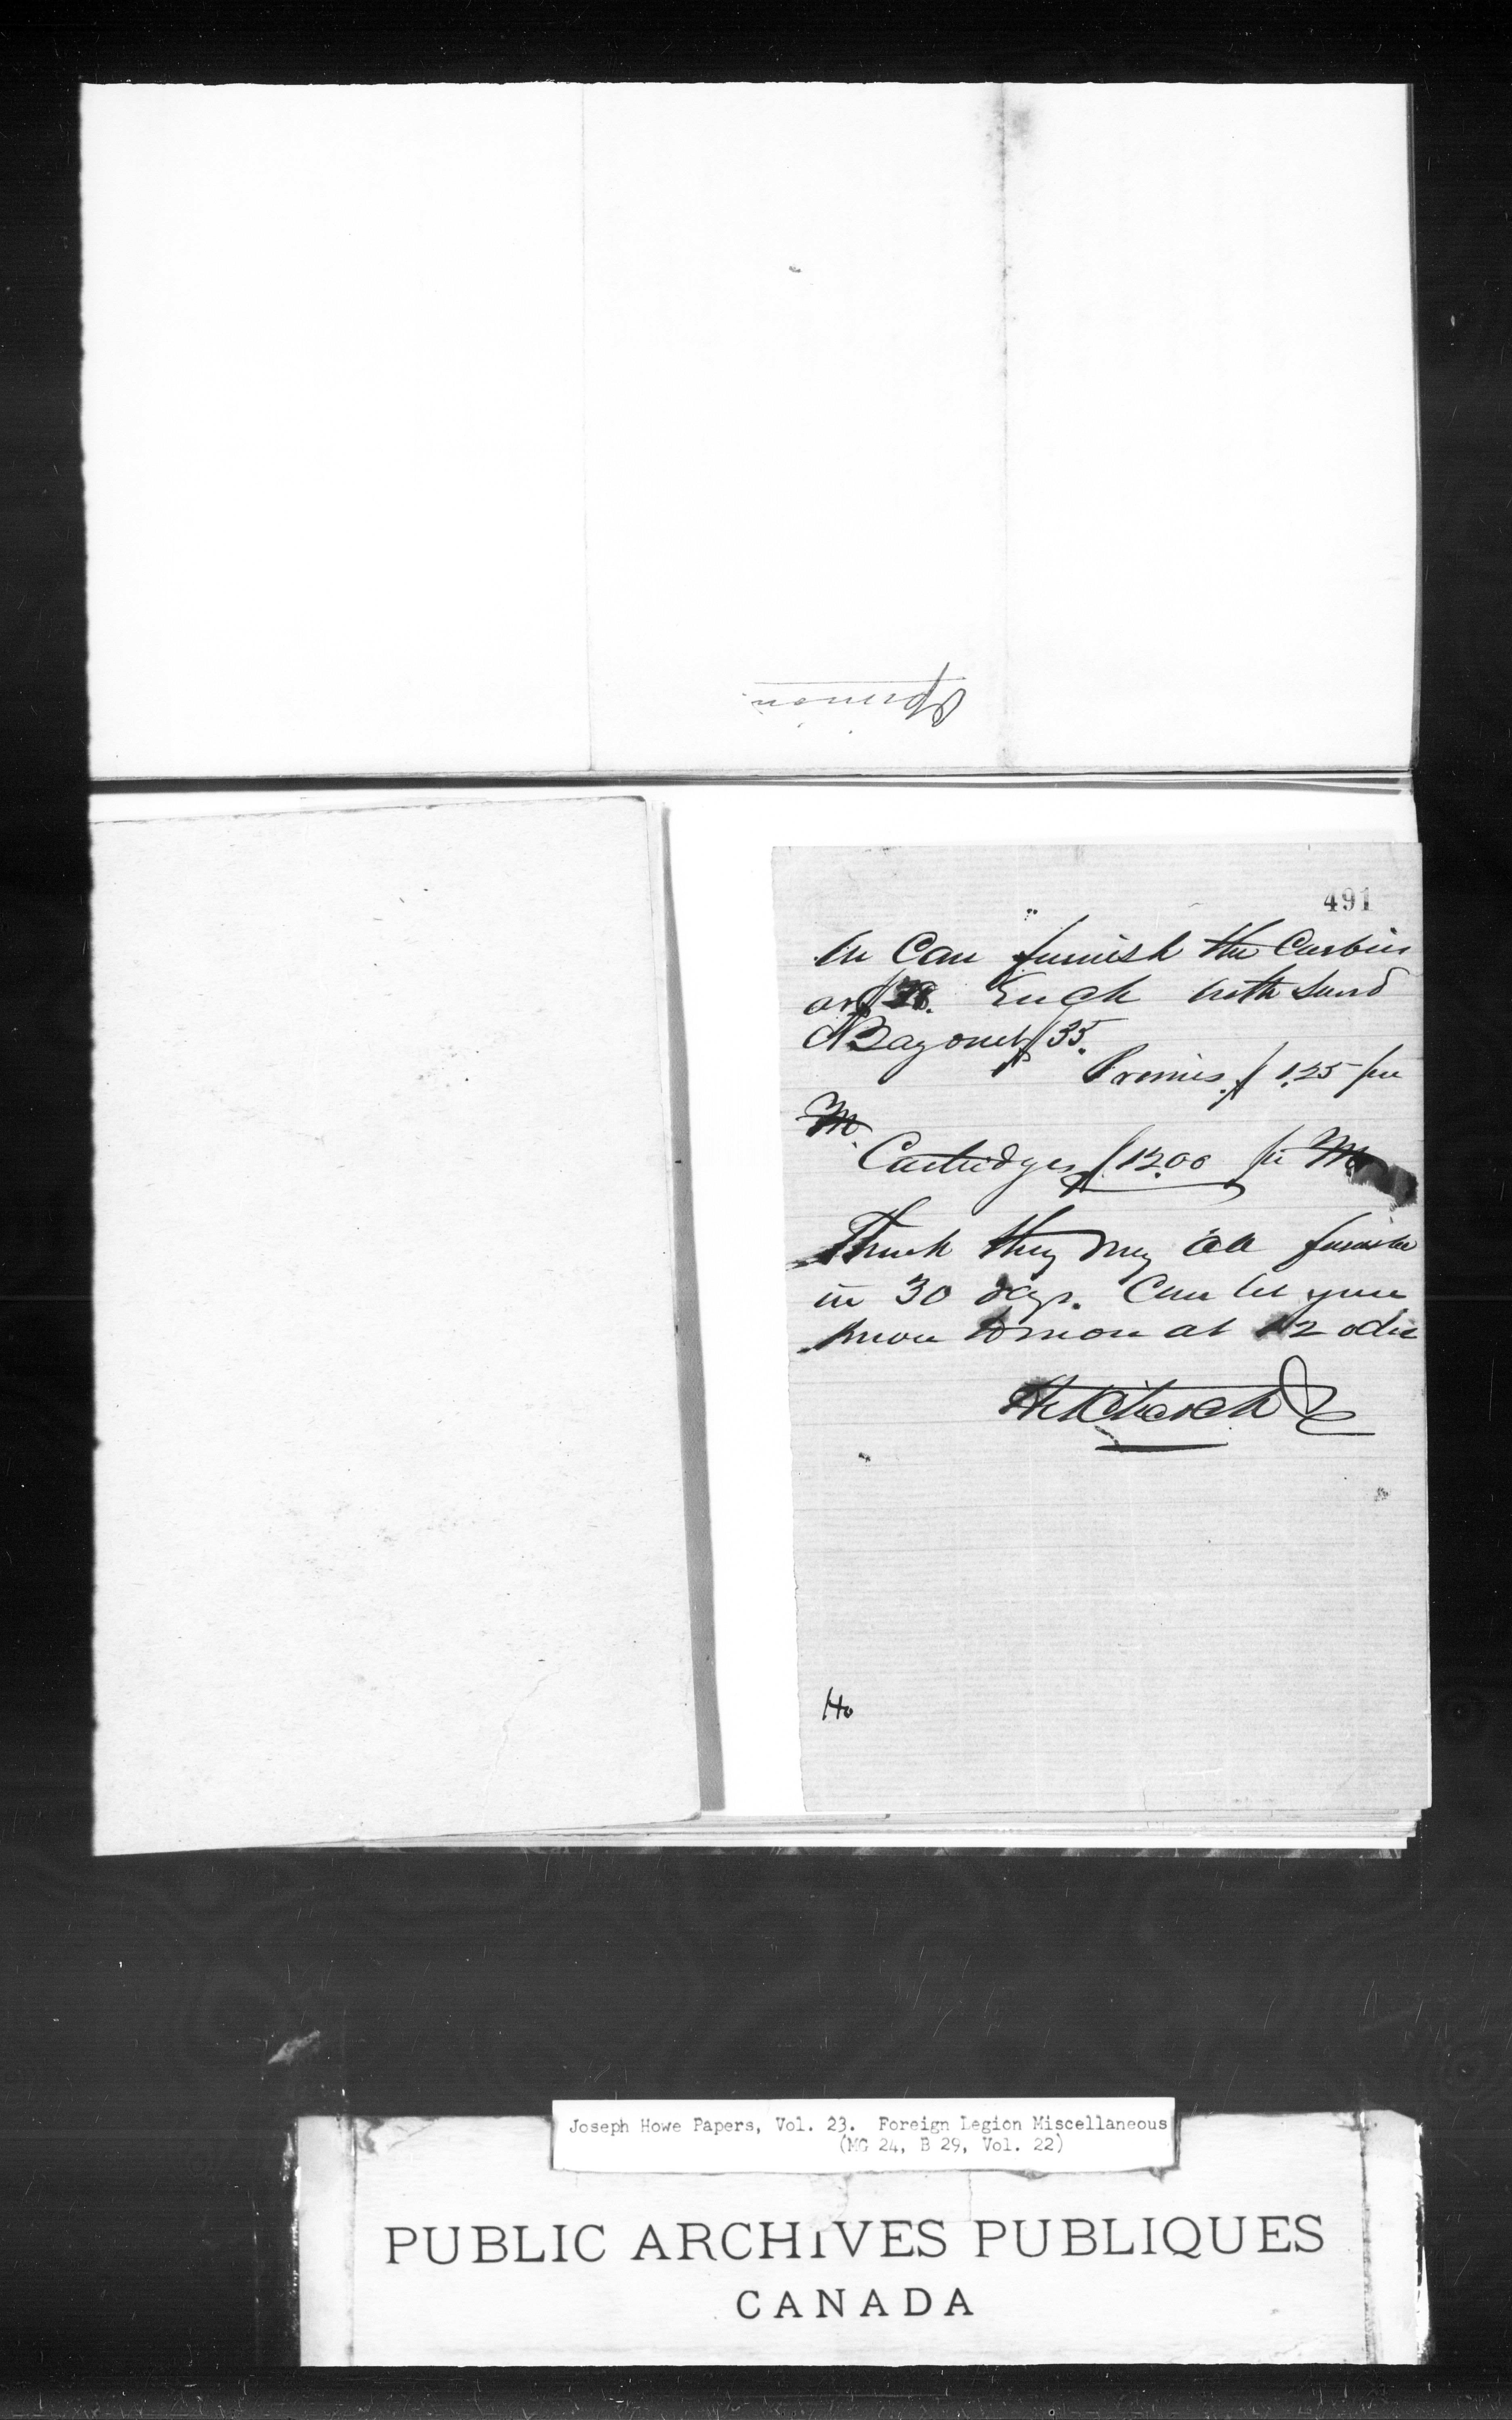 491
We Can furnish the Carbin
at $28. Each with Sword
Bayonet $35.
Primies $1.25 per
M.
Cartridges $12.00 per M
Think they may all furnishe
in 30 days. Can let you
know tomon at 12 oclc
Ho
Joseph Howe Papers, Vol. 23. Foreign Legion Miscellaneous
(MG 24, B 29, Vol. 22)
PUBLIC ARCHIVES PUBLIQUES
CANADA